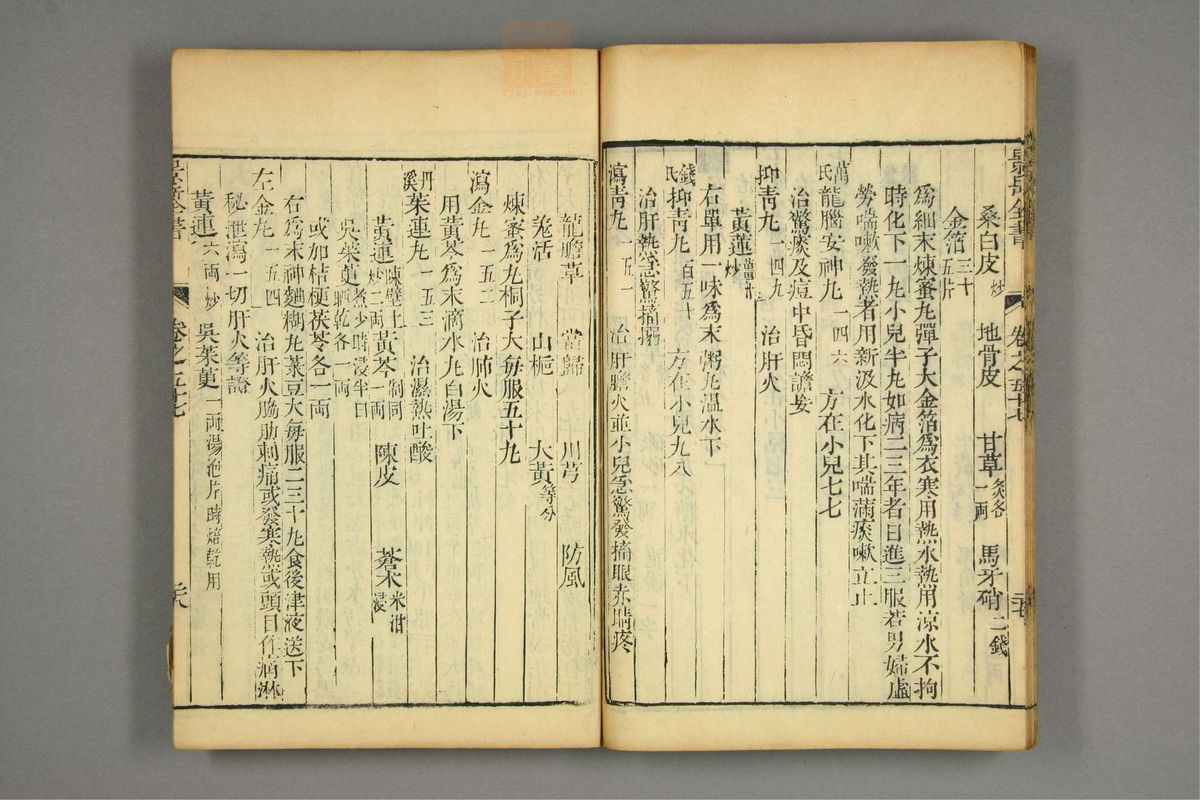 景岳全書 卷之五十七
桑白皮炒 地骨皮 甘草炙各一兩 馬牙硝二錢
金箔三十五片
爲細末煉蜜丸彈子大金箔爲衣寒用熱水熱用涼水不拘
時化下一丸小兒半丸如病二三年者日進三服若男婦虛
勞喘嗽發熱者用新汲水化下其喘滿痰嗽立止
萬氏龍腦安神丸一四六 方在小兒七七
治驚痰及痘中昏悶譫妄
抑靑丸一四九 治肝火
黃蓮炒
右單用一味爲末粥丸溫水下
錢氏抑靑丸百五十 方在小兒九八
治肝熱急驚搐搦
瀉靑丸一五一 治肝膽火並小兒急驚發搐眼赤睛疼
龍膽草 當歸 川芎 防風
羗活 山梔 大黃等分
煉蜜爲丸桐子大每服五十丸
瀉金丸一五二 治肺火
用黃芩爲末滴水丸白湯下
丹溪茱連丸一五三 治濕熱吐酸
黃蓮陳壁土炒二兩 黃芩制同一兩 陳皮 蒼朮米泔浸
吳茱萸煮少時浸半日晒乾各一兩
或加桔梗茯苓各一兩
右爲末神麯糊丸菉豆大每服二三十丸食後津液送下
左金丸一五四 治肝火脇肋刺痛或發寒熱或頭目作痛淋
秘泄瀉一切肝火等證
黃連六兩炒 吳茱萸一兩湯泡片時焙乾用
景岳全書 卷之五十七